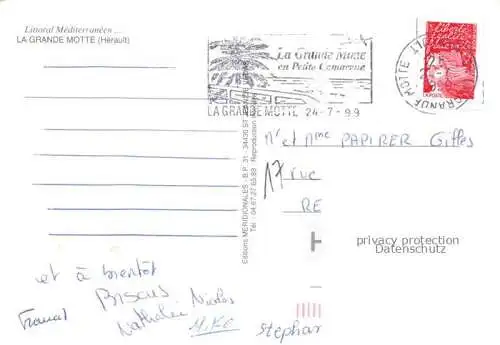 Littoral Méditerranéen ...
LA GRANDE MOTTE (Hérault)
La Grande Motte
en Petite Camargue
LA GRANDE MOTTE 24-7-99
LA POSTE
GRANDE MOTTE
Mr et Mme PAPIRER Gilles
17 rue
RE
privacy protection
Datenschutz
Editions MERIDIONALES - B.P. 31 - 34436 ST
Tél : 04.67.27.65.83 Reproduction
et à bientôt
Bisous
Nicolas
Nathalie
MIKE
Stephan